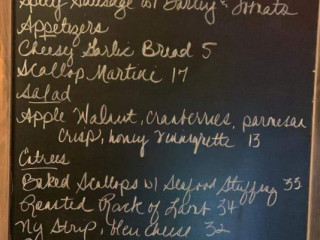 Spicy Sausage w/ Barley & Tomato
Appetizers
Cheesy Garlic Bread 5
Scallop Martini 17
Salad
Apple Walnut, cranberries, parmesan
crisp, honey vinaigrette 13
Entrees
Baked Scallops w/ Seafood Stuffing 33
Roasted Rack of Lamb 34
Ny Strip, bleu cheese 32